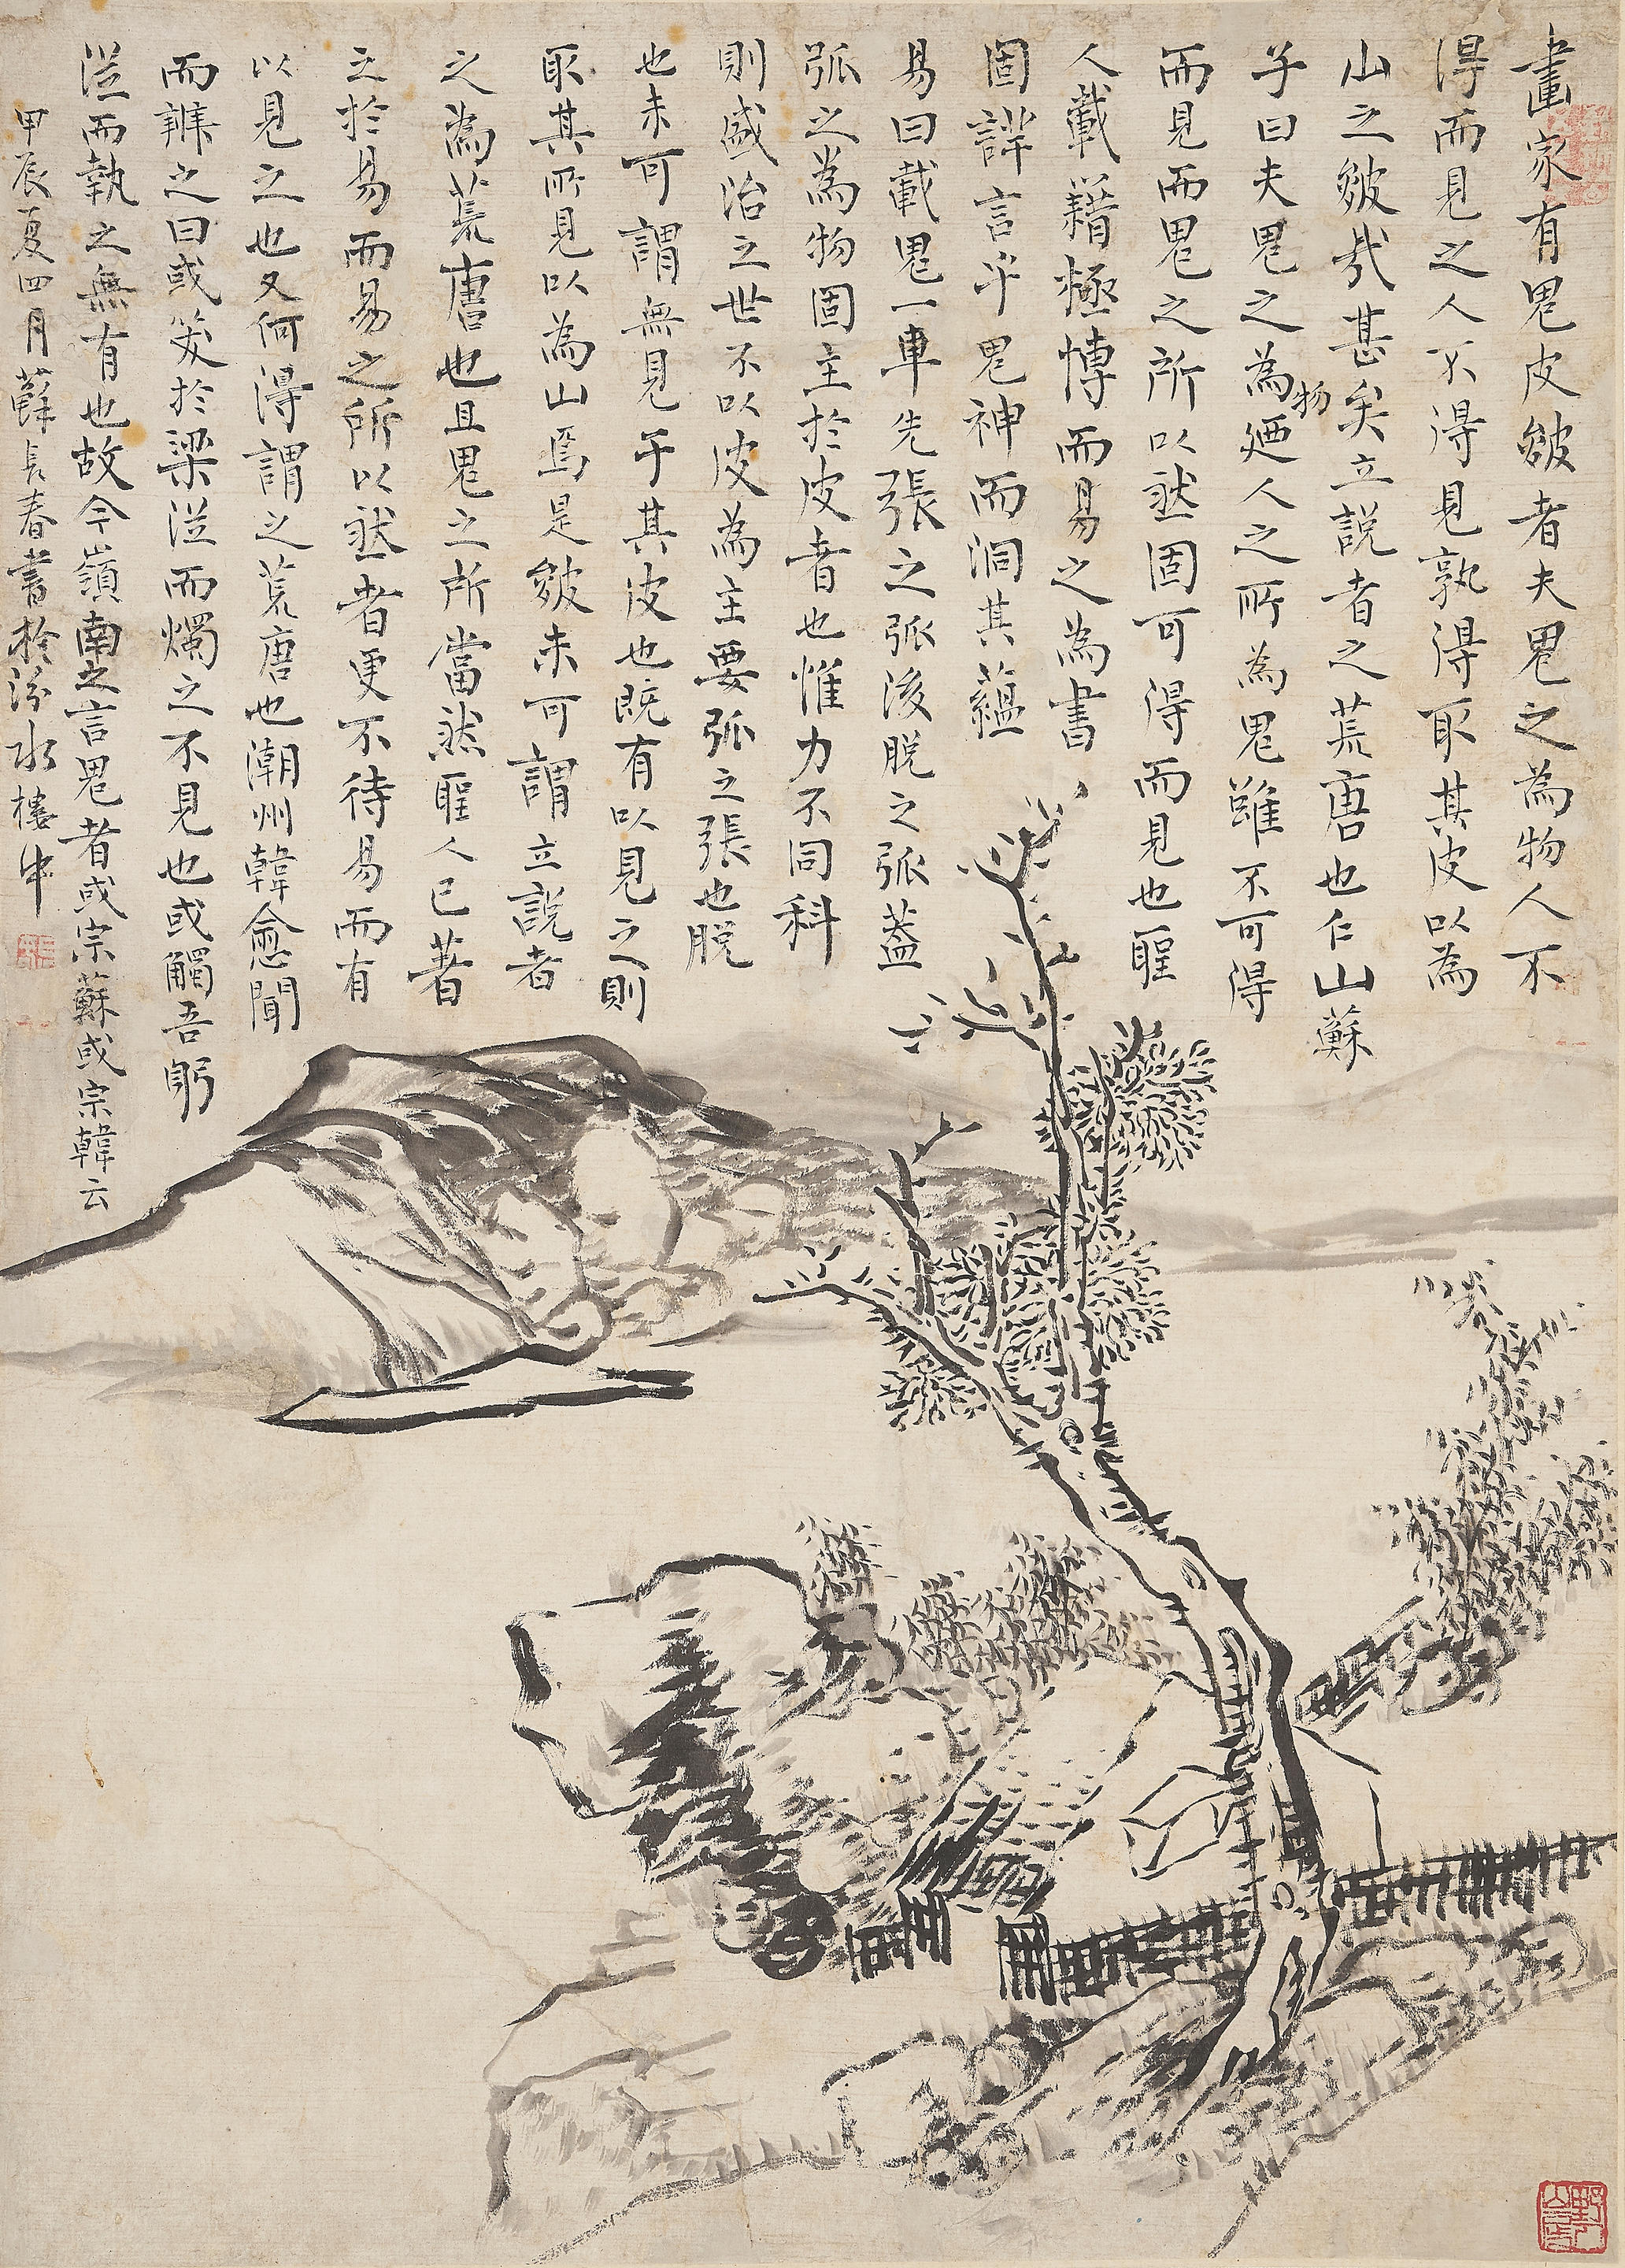 畫家有鬼皮皴者夫鬼之為物人不
得而見之人不得見孰得取其皮以為
山之皴哉甚矣立說者之荒唐也仁山蘇
子曰夫鬼之為物廼人之所為鬼雖不可得
而見而鬼之所以然固可得而見也聖
人載籍極博而易之為書
固諱言乎鬼神而洞其蘊
易曰載鬼一車先張之弧後脫之弧蓋
弧之為物固主於皮者也惟力不同科
則盛治之世不以皮為主要弧之張也脫
也未可謂無見乎其皮也既有以見之則
取其所見以為山焉是皴未可謂立說者
之為荒唐也且鬼之所當然聖人已著
之於易而易之所以然者更不待易而有
以見之也又何得謂之荒唐也潮州韓愈聞
而辨之曰或笑於梁從而燭之不見也或觸吾躬
從而執之無有也故今嶺南之言鬼者或宗蘇或宗韓云
甲辰夏四月蘇長春書於汾水樓中